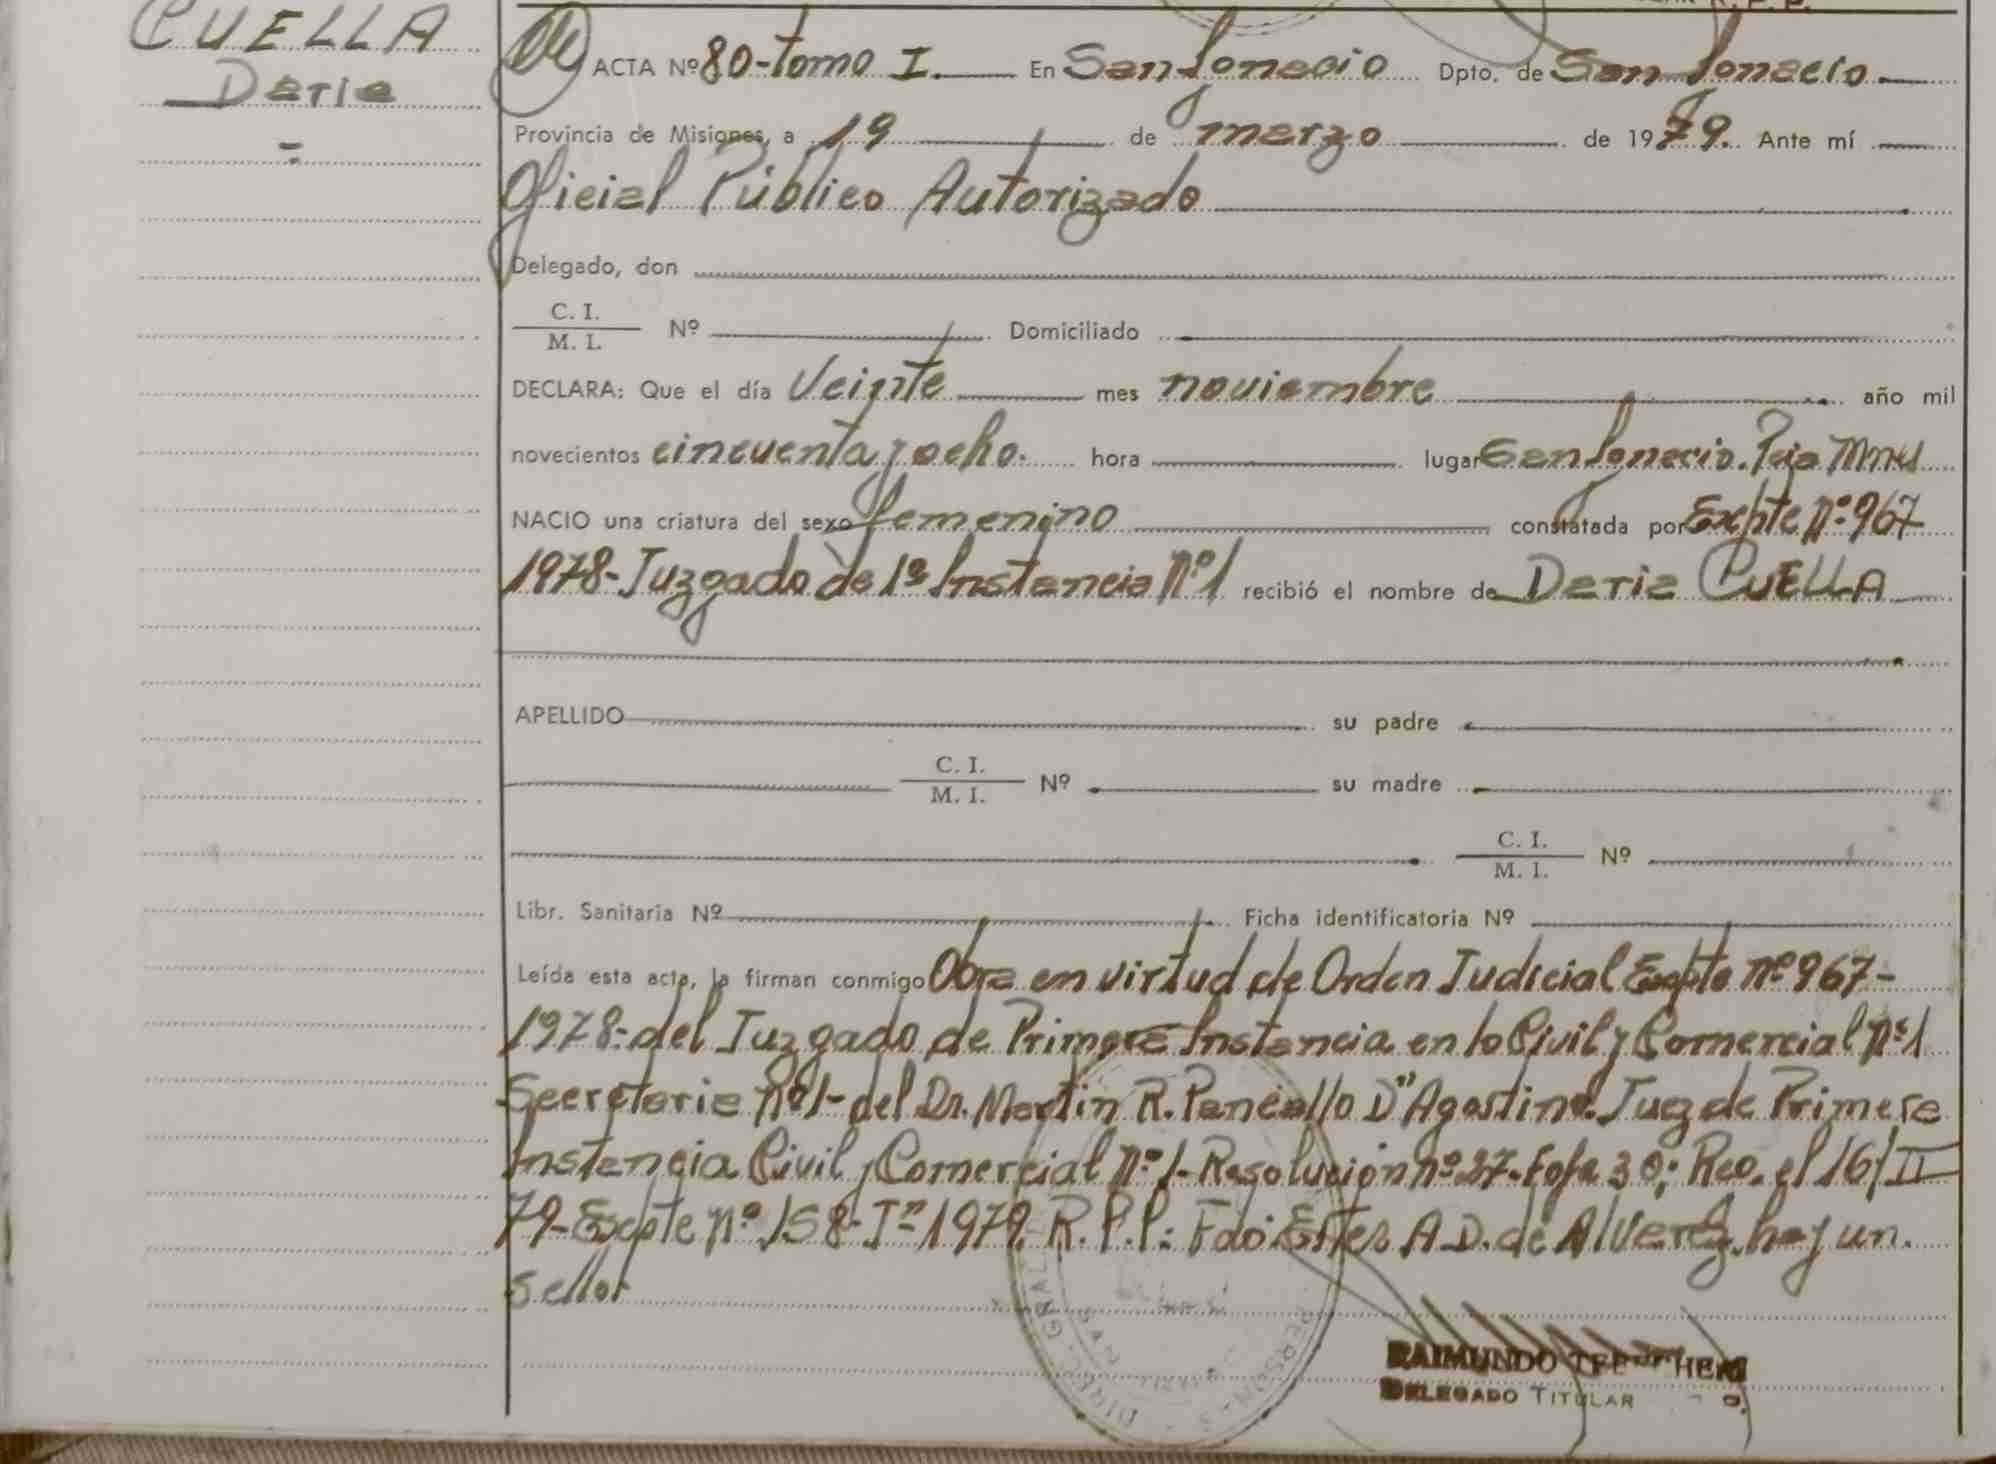 CUELLA
Daria
-
ACTA Nº 80-tomo I. En San Ignacio Dpto. de San Ignacio
Provincia de Misiones, a 19 de marzo de 1979. Ante mí
Oficial Público Autorizado
Delegado, don
C. I.
M. I. Nº Domiciliado
DECLARA: Que el día Veinte mes noviembre año mil
novecientos cincuenta y ocho. hora lugar San Ignacio. Pcia Mnes
NACIO una criatura del sexo femenino constatada por Expte Nº 967
1978- Juzgado de 1ª Instancia Nº 1 recibió el nombre de Daria CUELLA
APELLIDO su padre
C. I.
M. I. Nº su madre
C. I.
M. I. Nº
Libr. Sanitaria Nº Ficha identificatoria Nº
Leída esta acta, la firman conmigo Obra en virtud de Orden Judicial Expte nº 967-
1978- del Juzgado de Primera Instancia en lo Civil y Comercial Nº 1
Secretaria Nº 1- del Dr. Martin R. D"Agostino. Juez de Primera
Instancia Civil y Comercial Nº 1- Resolución nº 27- foja 30; Reo. el 16/II
79- Expte nº 158- 1979. R.P.P.: Fdo: A.D. de Alvarez. hay un.
sello
RAIMUNDO
DELEGADO TITULAR